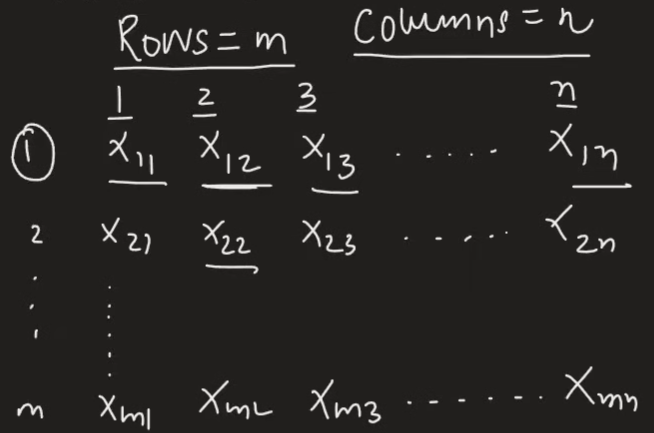 Rows = m Columns = n
1 2 3 n
1 X11 X12 X13 ..... X1n
2 X21 X22 X23 ..... X2n
m Xm1 Xm2 Xm3 ....... Xmn